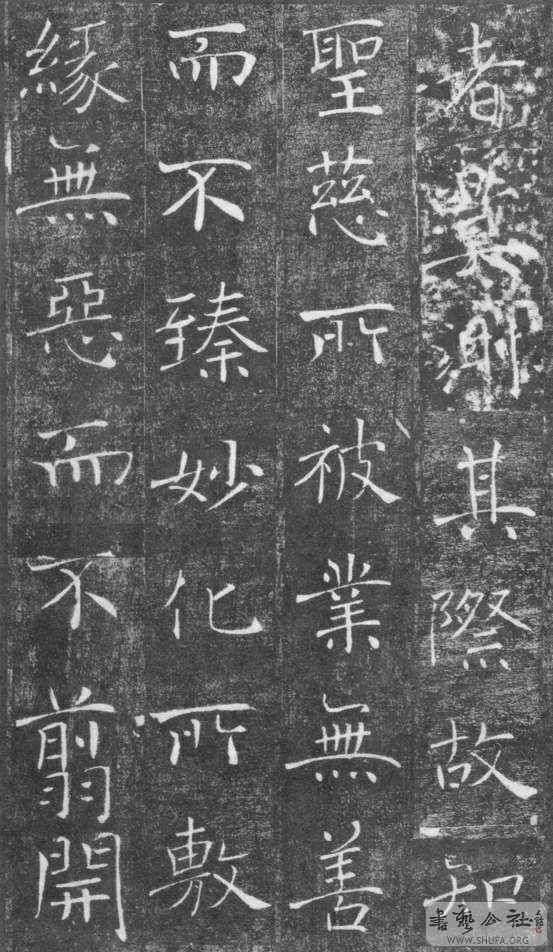 者莫測其際故知
聖慈所被業無善
而不臻妙化所敷
緣無惡而不翦開
書藝公社
WWW.SHUFA.ORG